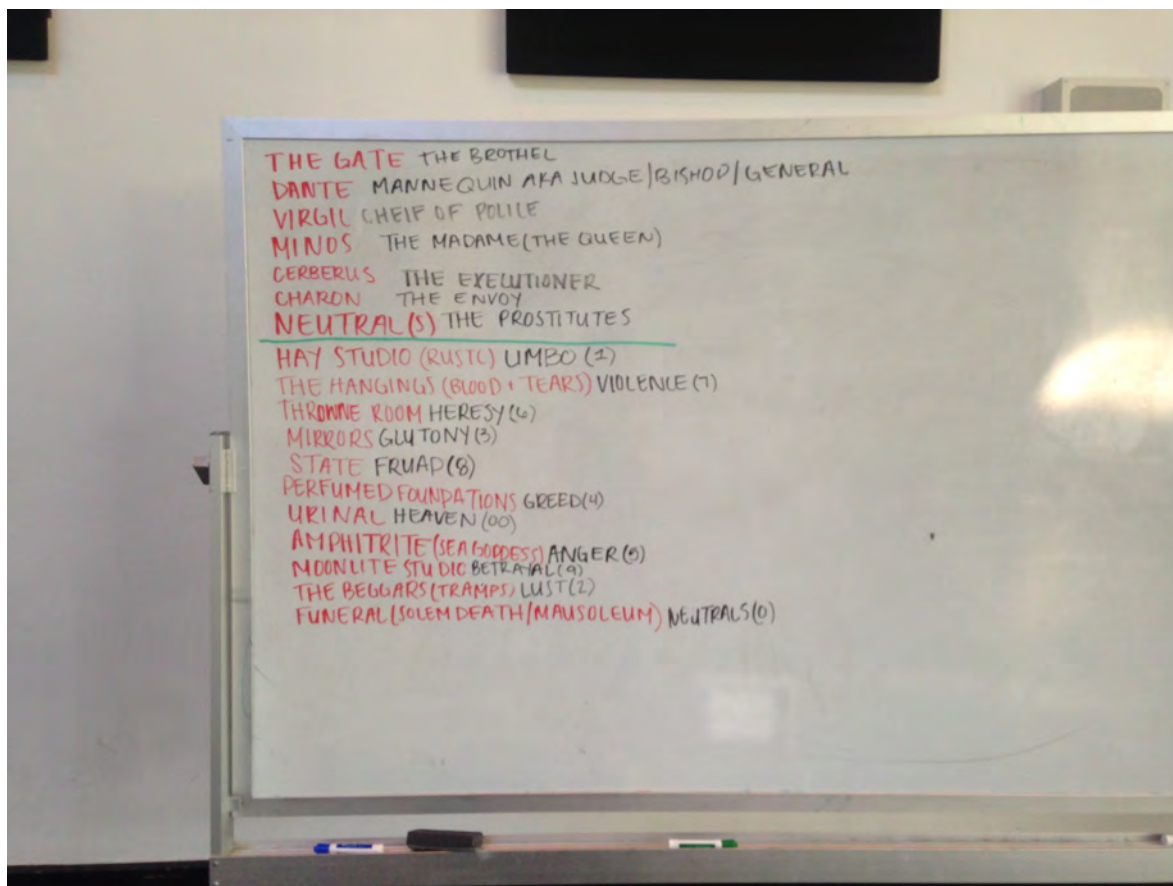 THE GATE THE BROTHEL
DANTE MANNEQUIN AKA JUDGE/BISHOP/GENERAL
VIRGIL CHEIF OF POLICE
MINOS THE MADAME (THE QUEEN)
CERBERUS THE EXECUTIONER
CHARON THE ENVOY
NEUTRAL(S) THE PROSTITUTES
HAY STUDIO (RUSTC) LIMBO (1)
THE HANGINGS (BLOOD + TEARS) VIOLENCE (7)
THRONNE ROOM HERESY (6)
MIRRORS GLUTONY (3)
STATE FRUAD (8)
PERFUMED FOUNDATIONS GREED (4)
URINAL HEAVEN (00)
AMPHITRITE (SEA GODDESS) ANGER (5)
MOONLITE STUDIO BETRAYAL (9)
THE BEGGARS (TRAMPS) LUST (2)
FUNERAL (SOLEM DEATH/MAUSOLEUM) NEUTRALS (0)